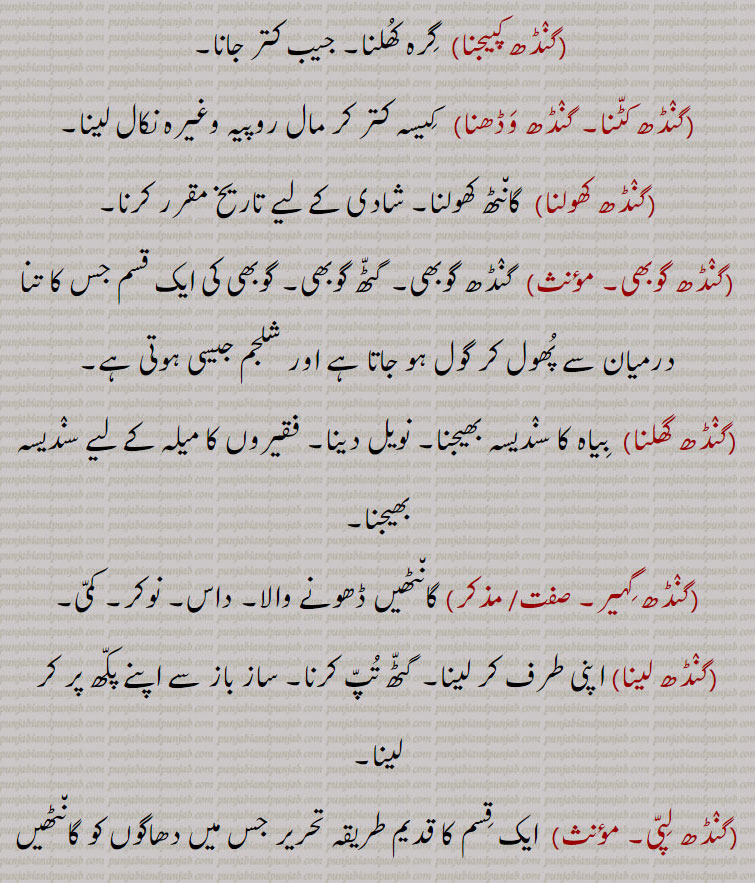 (گنْڈھ کپیجنا) گِرہ کھُلنا۔ جیب کتر جانا۔
(گنْڈھ کٹّنا۔ گنْڈھ وَڈھنا) کِیسہ کتر کر مال روپیہ وغیرہ نکال لینا۔
(گنْڈھ کھولنا) گانْٹھ کھولنا۔ شادی کے لیے تاریخ مقرر کرنا۔
(گنْڈھ گوبھی۔ مؤنث) گنْڈھ گوبھی۔ گٹھّ گوبھی۔ گوبھی کی ایک قسم جس کا تنا
درمیان سے پُھول کر گول ہو جاتا ہے اور شلجم جیسی ہوتی ہے۔
(گنْڈھ گھلنا) بِیاہ کا سنْدیسہ بھیجنا۔ نویل دینا۔ فقیروں کا میلہ کے لیے سنْدیسہ
بھیجنا۔
(گنْڈھ گہیر۔ صفت/ مذکر) گانْٹھیں ڈھونے والا۔ داس۔ نوکر۔ کمّی۔
(گنْڈھ لینا) اپنی طرف کر لینا۔ گٹھّ تُپّ کرنا۔ ساز باز سے اپنے پکھّ پر کر
لینا۔
(گنْڈھ لِپّی۔ مؤنث) ایک قِسم کا قدیم طریقہ تحریر جس میں دھاگوں کو گانْٹھیں